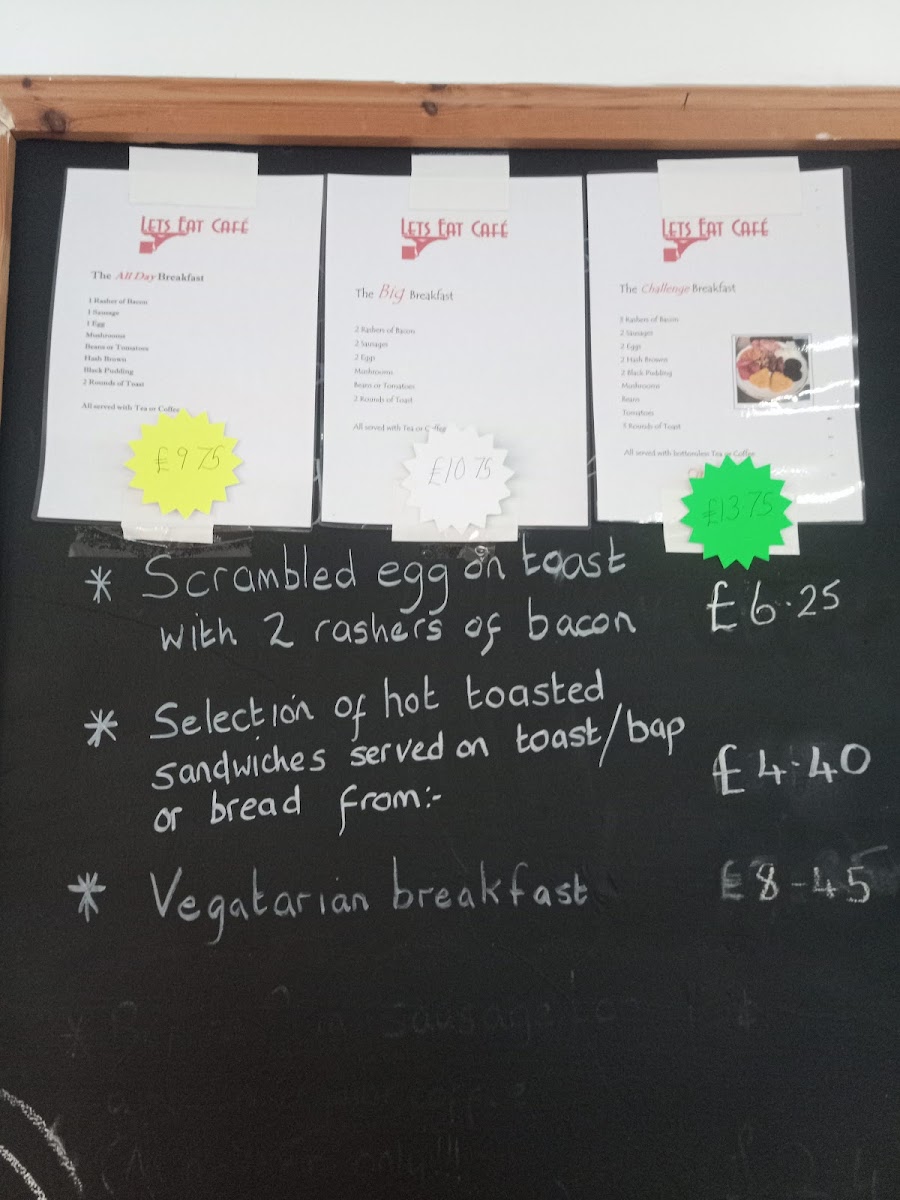 LETS EAT CAFÉ
The All Day Breakfast
1 Rasher of Bacon
1 Sausage
1 Egg
Mushrooms
Beans or Tomatoes
Hash Brown
Black Pudding
2 Rounds of Toast
All served with Tea or Coffee
£9 75
LETS EAT CAFÉ
The Big Breakfast
2 Rashers of Bacon
2 Sausages
2 Eggs
Mushrooms
Beans or Tomatoes
2 Rounds of Toast
All served with Tea or Coffee
£10 75
LETS EAT CAFÉ
The Challenge Breakfast
3 Rashers of Bacon
2 Sausages
2 Eggs
2 Hash Browns
2 Black Pudding
Mushrooms
Beans
Tomatoes
5 Rounds of Toast
All served with bottomless Tea or Coffee
£13.75
* Scrambled egg on toast
with 2 rashers of bacon £6.25
* Selection of hot toasted
sandwiches served on toast/bap
or bread from:- £4.40
* Vegatarian breakfast £8-45
sausage
only!!!